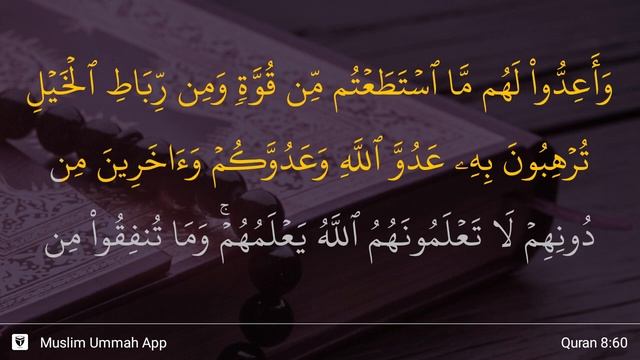 وَأَعِدُّوا۟ لَهُم مَّا ٱسْتَطَعْتُم مِّن قُوَّةٍ وَمِن رِّبَاطِ ٱلْخَيْلِ
تُرْهِبُونَ بِهِۦ عَدُوَّ ٱللَّهِ وَعَدُوَّكُمْ وَءَاخَرِينَ مِن
دُونِهِمْ لَا تَعْلَمُونَهُمُ ٱللَّهُ يَعْلَمُهُمْ ۚ وَمَا تُنفِقُوا۟ مِن
Muslim Ummah App
Quran 8:60